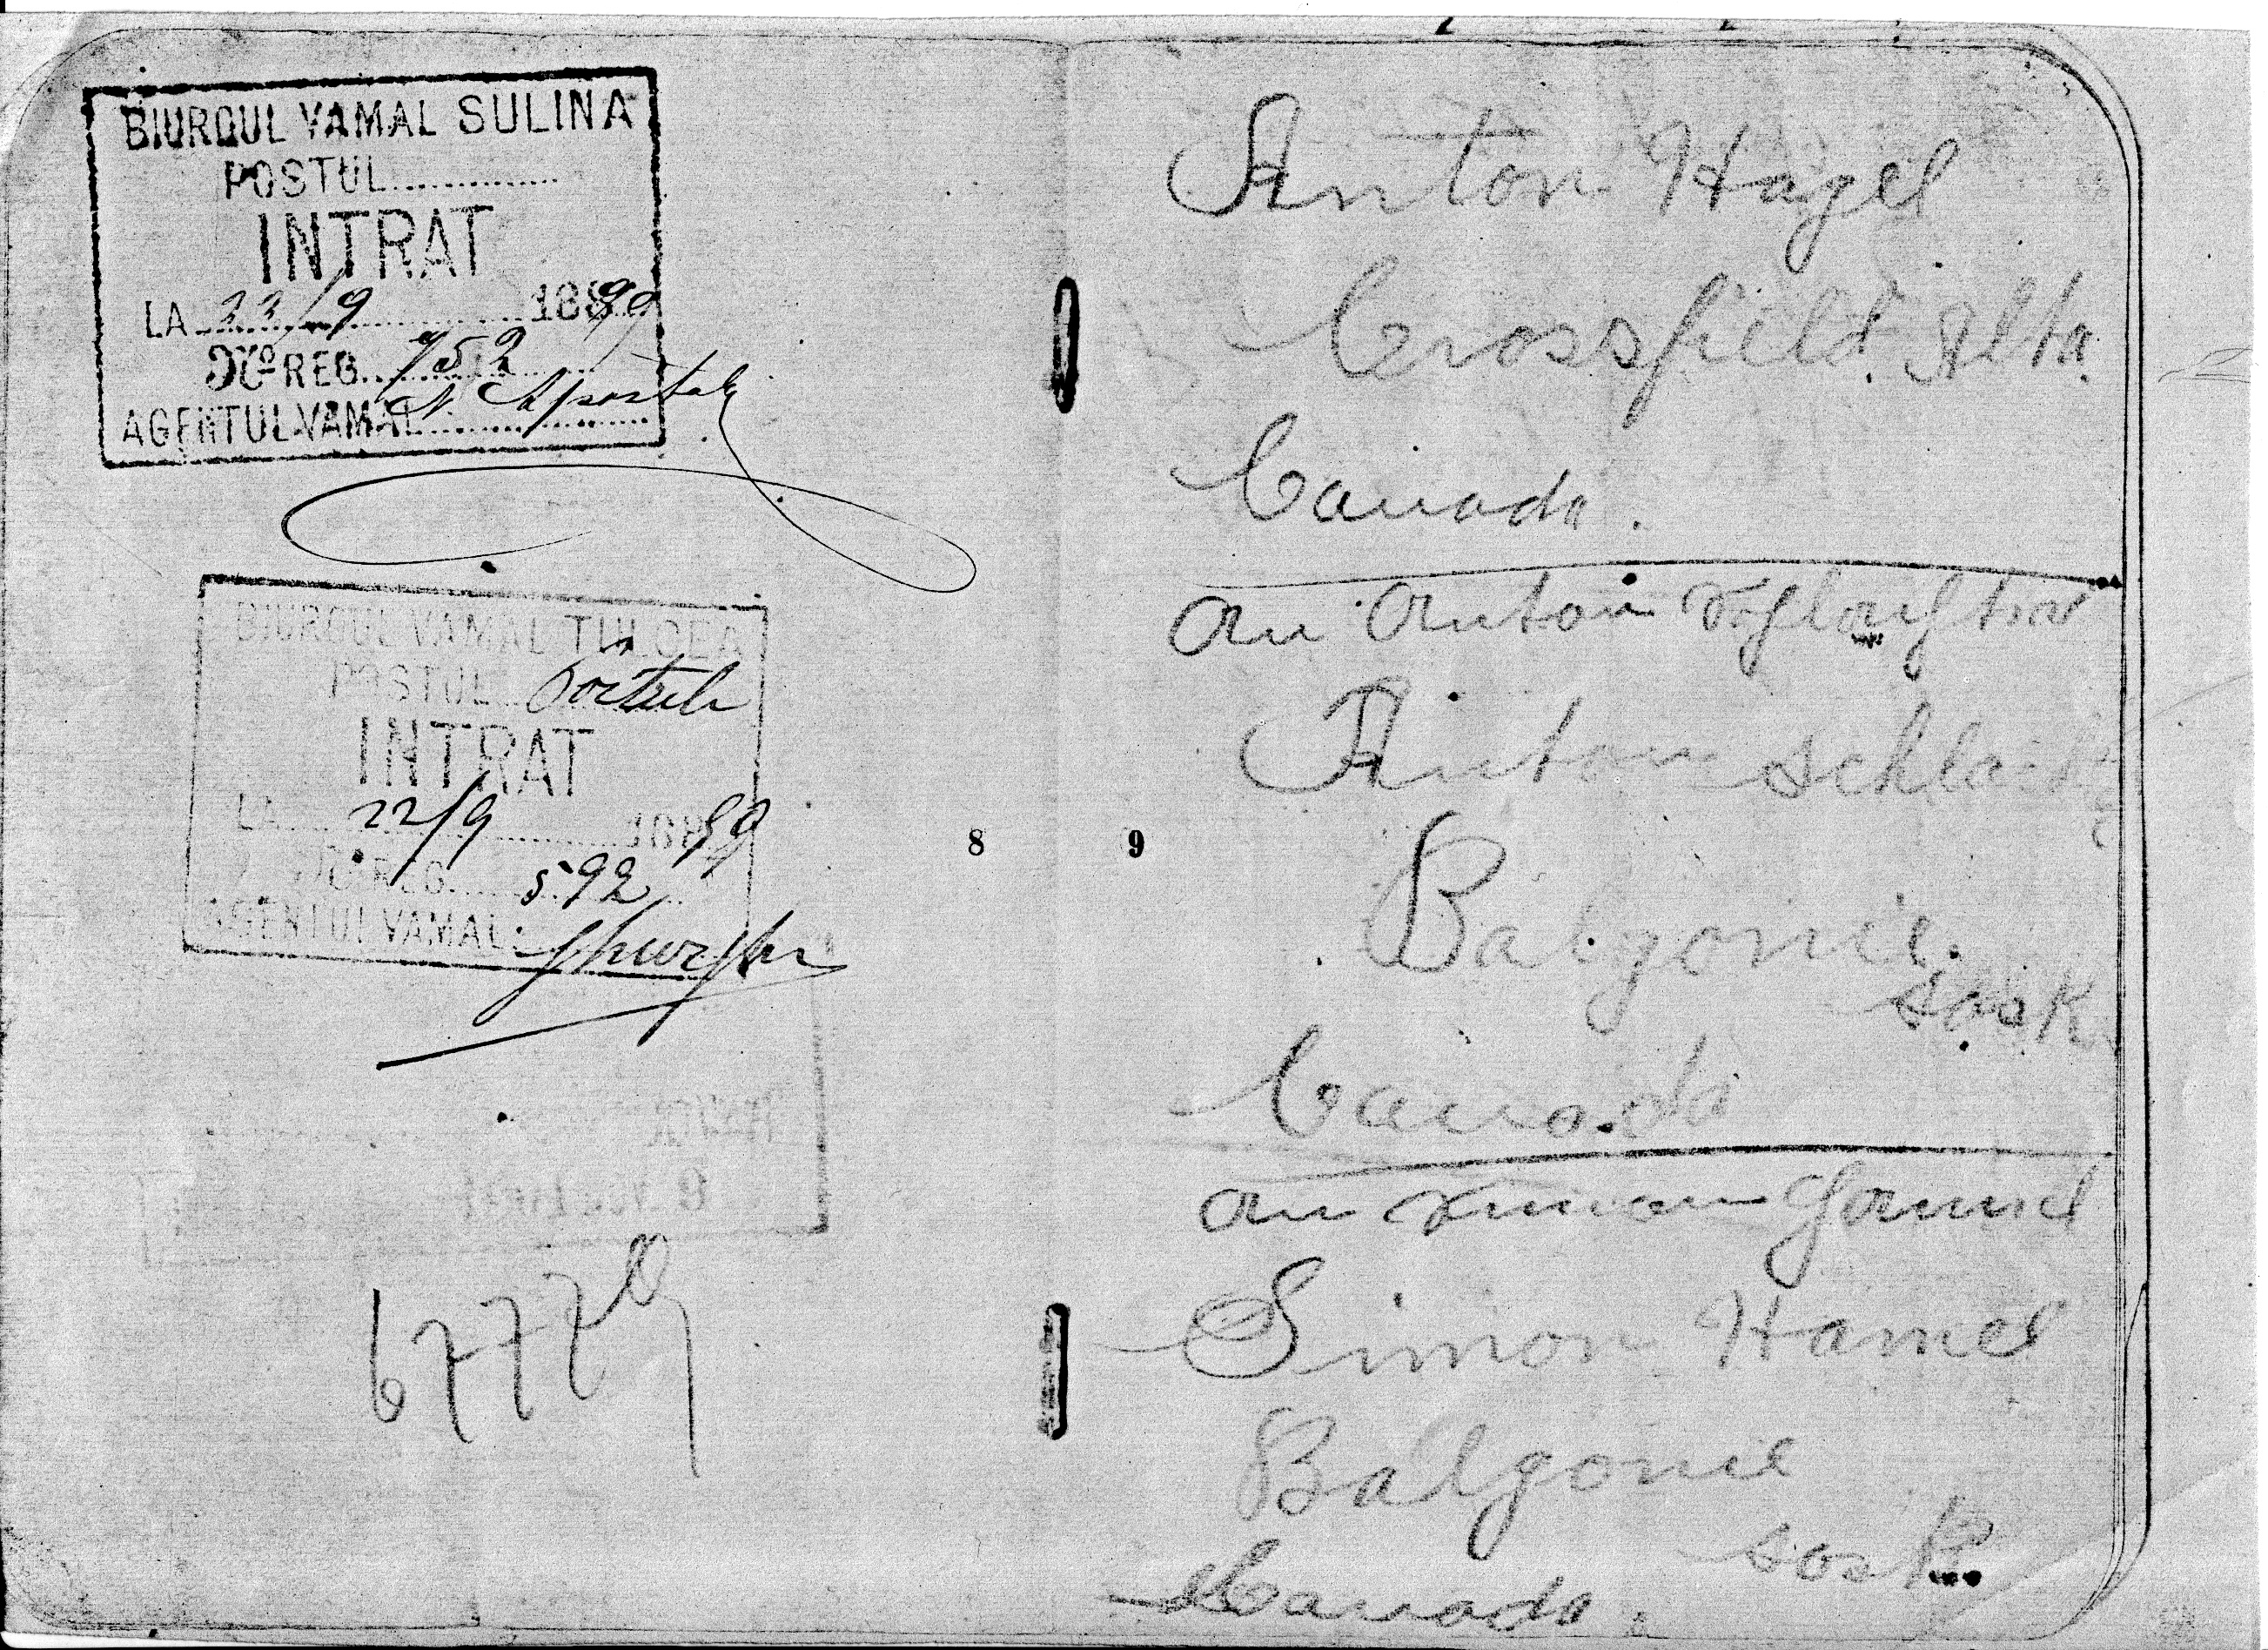 BIUROUL VAMAL SULINA
POSTUL
INTRAT
LA 22/9 1899
No REG. 752
AGENTUL VAMAL N Apostol
BIUROUL VAMAL TULCEA
POSTUL
INTRAT
LA 22/9 1899
No REG. 592
AGENTUL VAMAL
67779
8
9
Anton Hagel
Crossfield. Alta.
Canada.
an Anton
Anton
Balgonie.
Sask.
Canada
an Simon Hamel
Simon Hamel
Balgonie
Sask.
Canada.